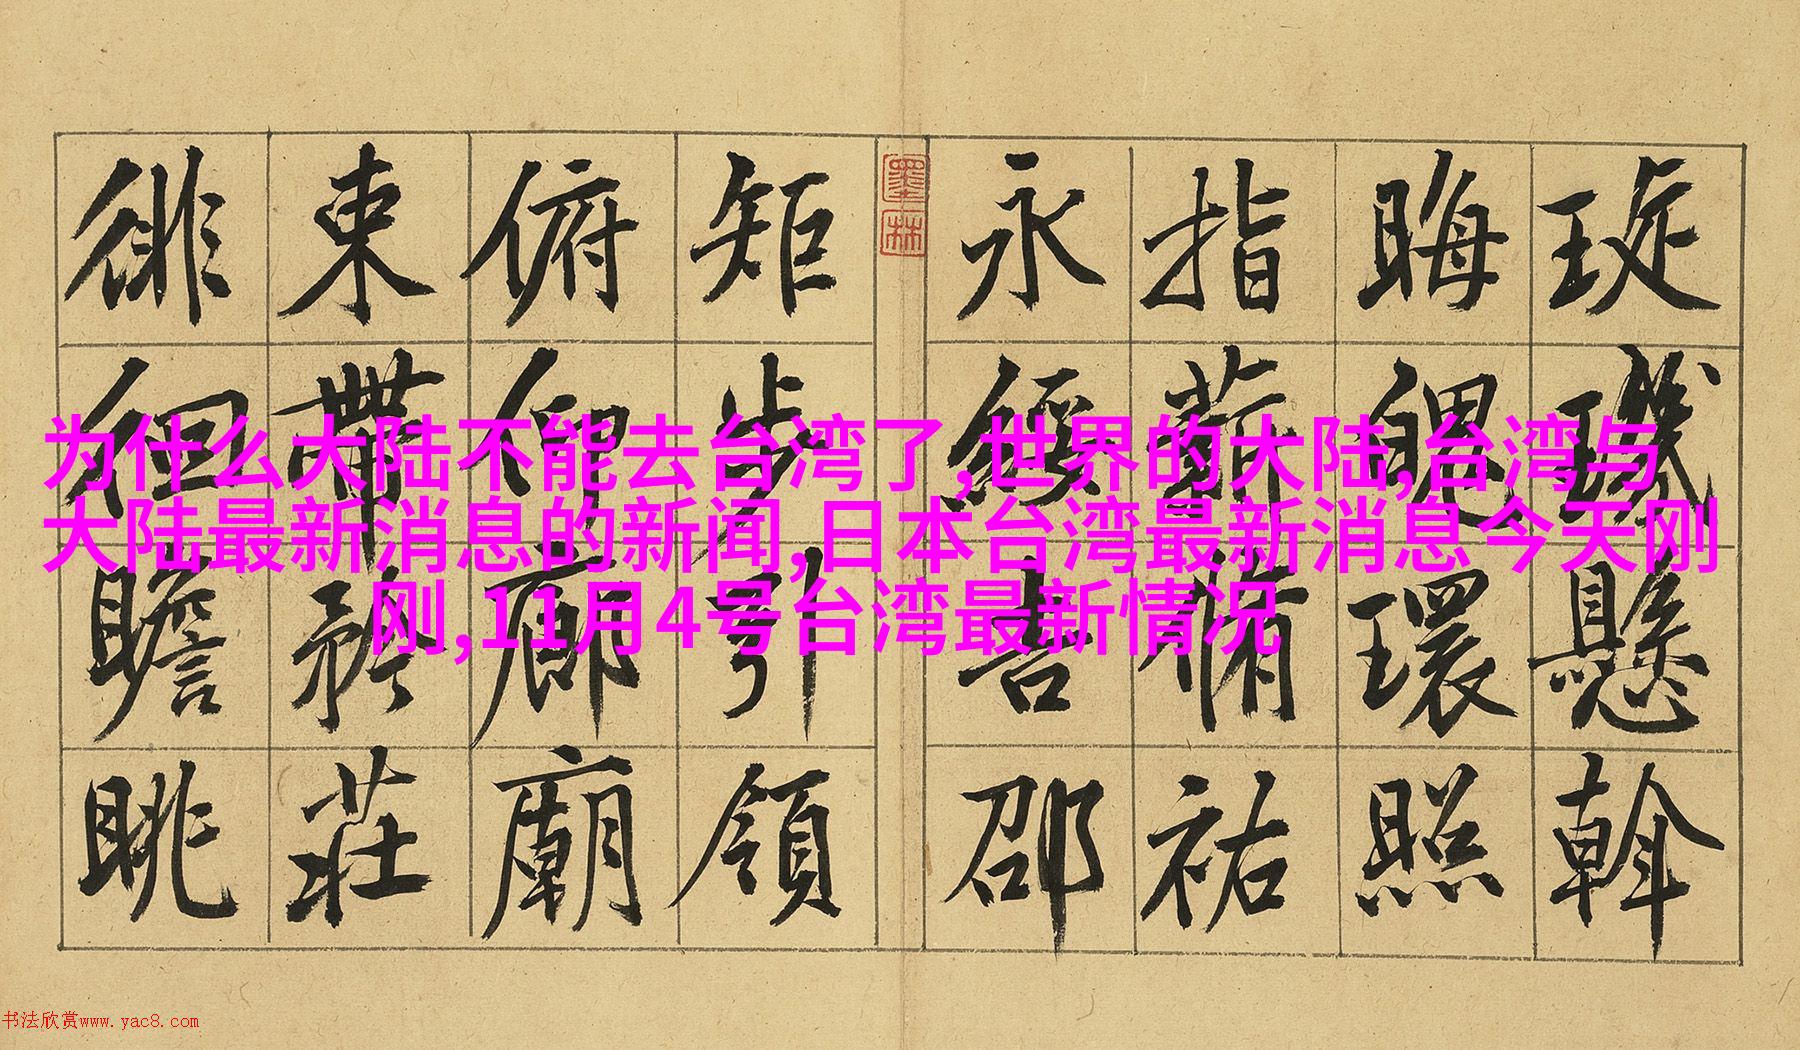 璇璣懸斡
晦魄環照
指薪脩祐
永綏吉邵
墨林
矩步引領
俯仰廊廟
束帶矜莊
徘徊瞻眺
为什么大陆不能去台湾了,世界的大陆,台湾与
大陆最新消息的新闻,日本台湾最新消息今天刚
刚,11月4号台湾最新情况
书法欣赏www.yac8.com